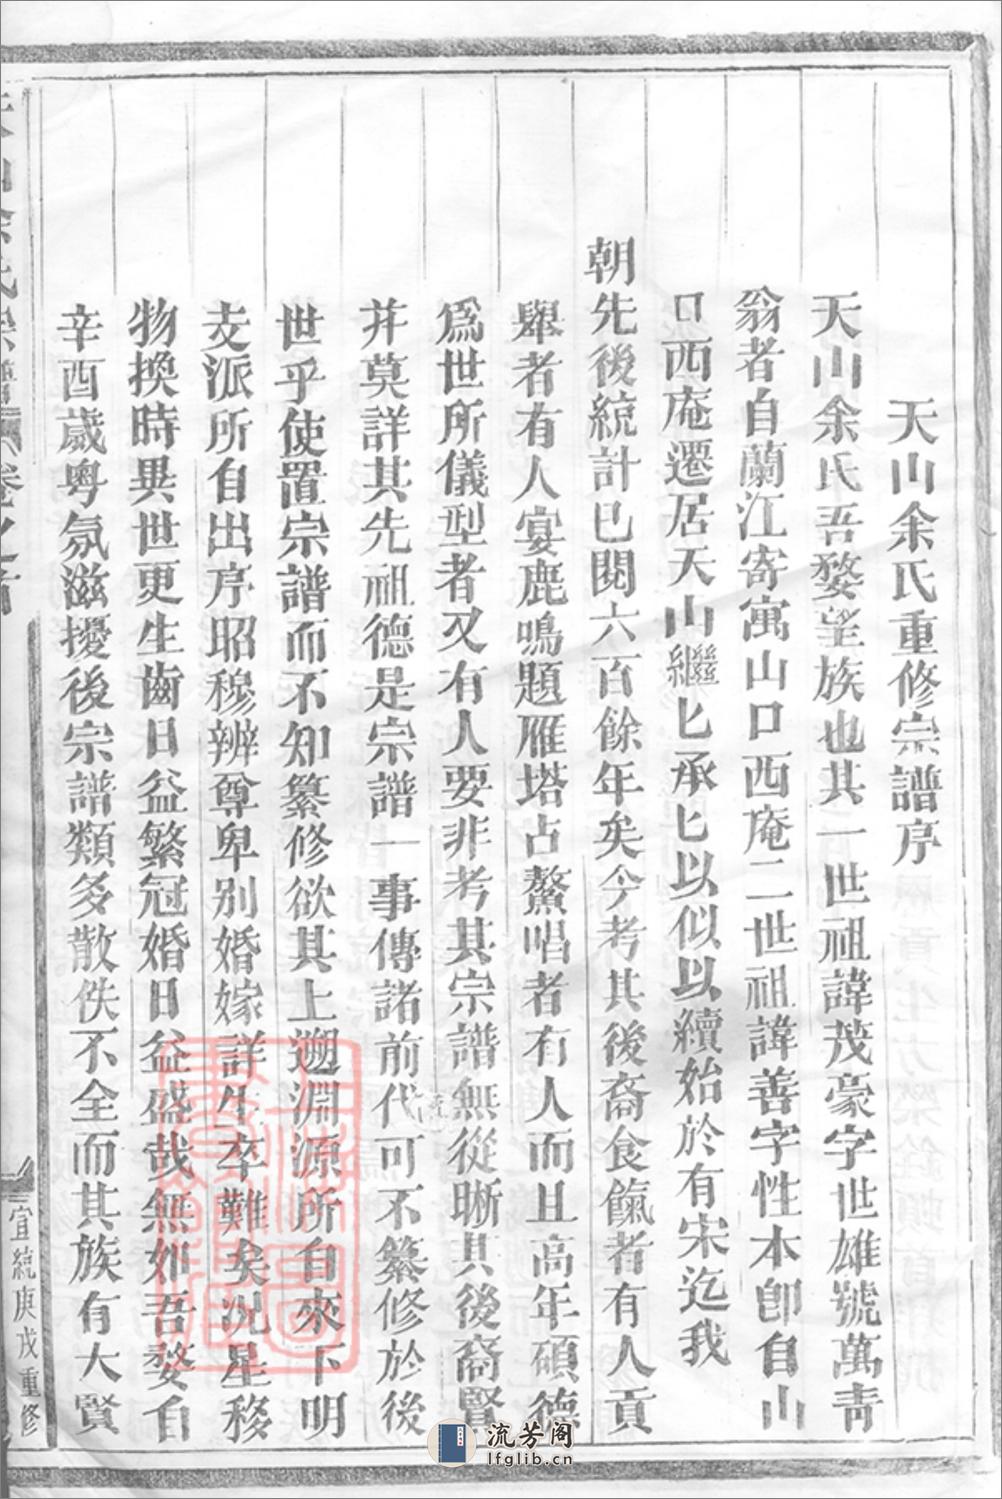 天山余氏重修宗譜序
天山余氏吾婺望族也其一世祖諱茂豪字世雄號萬靑
翁者自蘭江寄寓山口西庵二世祖諱善字性本卽自山
口西庵遷居天山繼匕承匕以似以續始於有宋迄我
朝先後統計已閱六百餘年矣今考其後裔食餼者有人貢
舉者有人宴鹿鳴題雁塔占鰲唱者有人而且高年碩德
爲世所儀型者又有人要非考其宗譜無從晰其後裔賢
并莫詳其先祖德是宗譜一事傳諸前代可不纂修於後
世乎使置宗譜而不知纂修欲其上遡淵源所自來下明
支派所自出序昭穆辨尊卑别婚嫁詳生卒難矣况星移
物換時異世更生齒日益繁冠婚日益盛哉無如吾婺自
辛酉歲粤氛滋擾後宗譜類多散佚不全而其族有大賢
天山余氏宗譜
卷之首
宣統庚戌重修
流芳阁
lfglib.cn